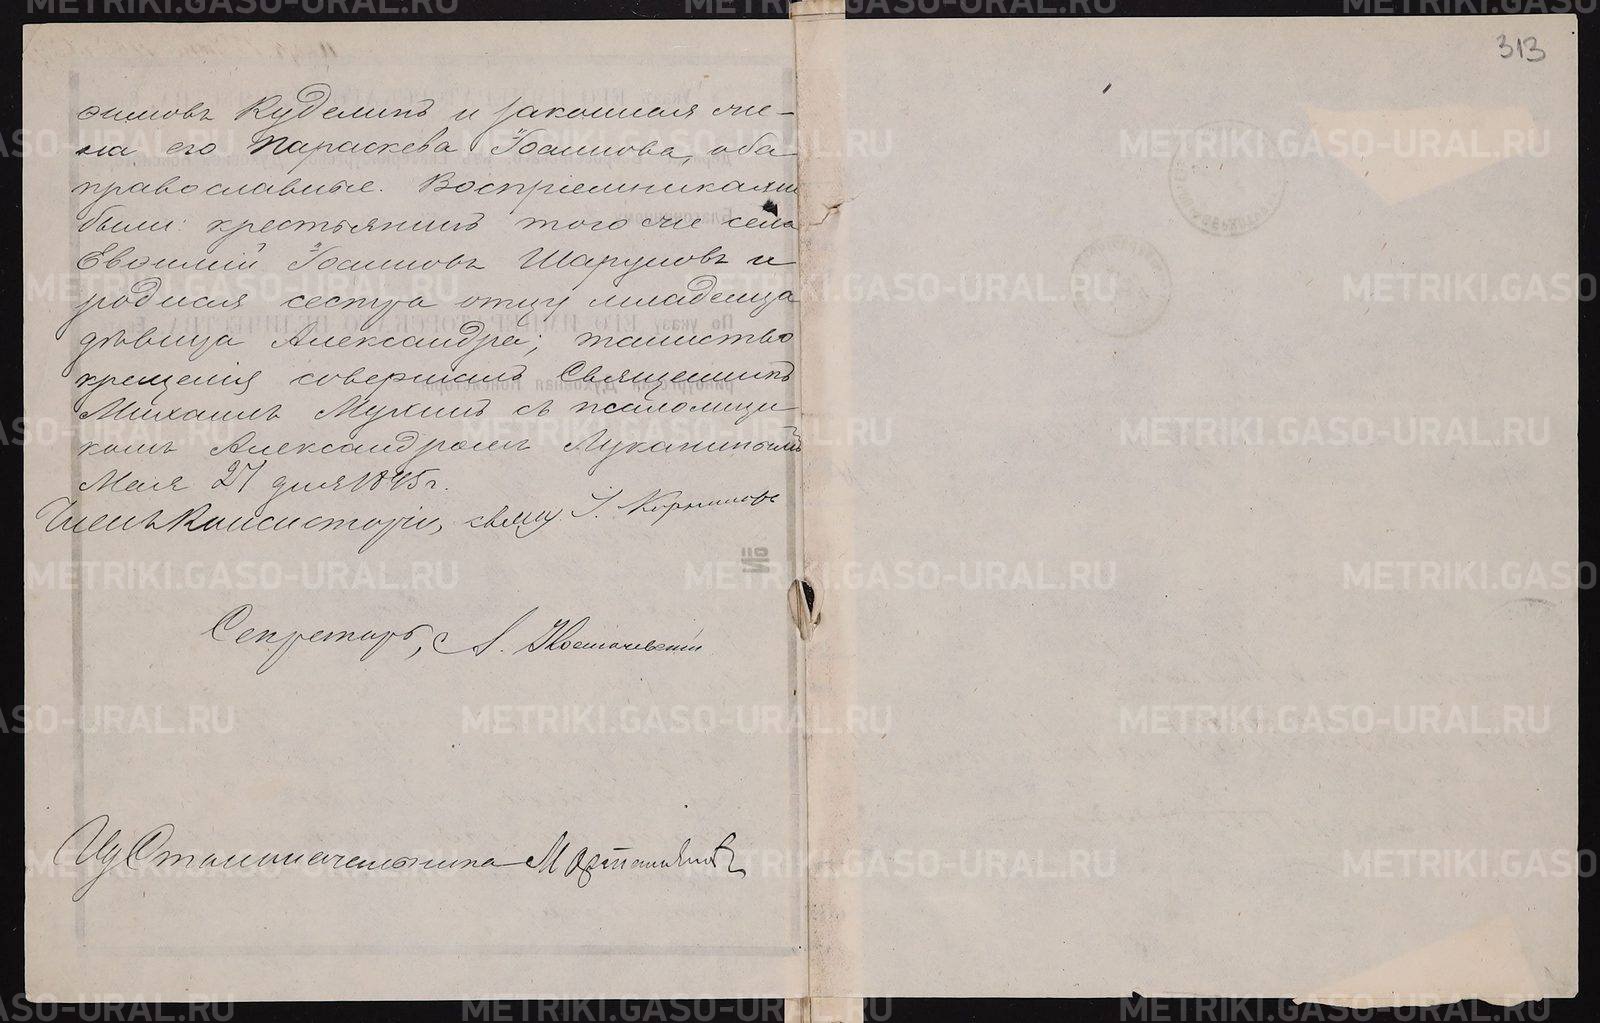 313
эимовъ Куделинъ и законная же-
на его Параскева Іоаннова, оба
православные. Воспріемниками
были: крестьянинъ того же села
Евѳимій Іоанновъ Шаруновъ и
родная сестра отцу младенца
дѣвица Александра; таинство
крещенія совершалъ Священникъ
Михаилъ Мухинъ съ псаломщи-
комъ Александромъ Луканинымъ
Мая 27 дня 1895 г.
Членъ Консисторіи, свящ. І.
Секретарь, А.
Столоначальника
METRIKI.GASO-URAL.RU